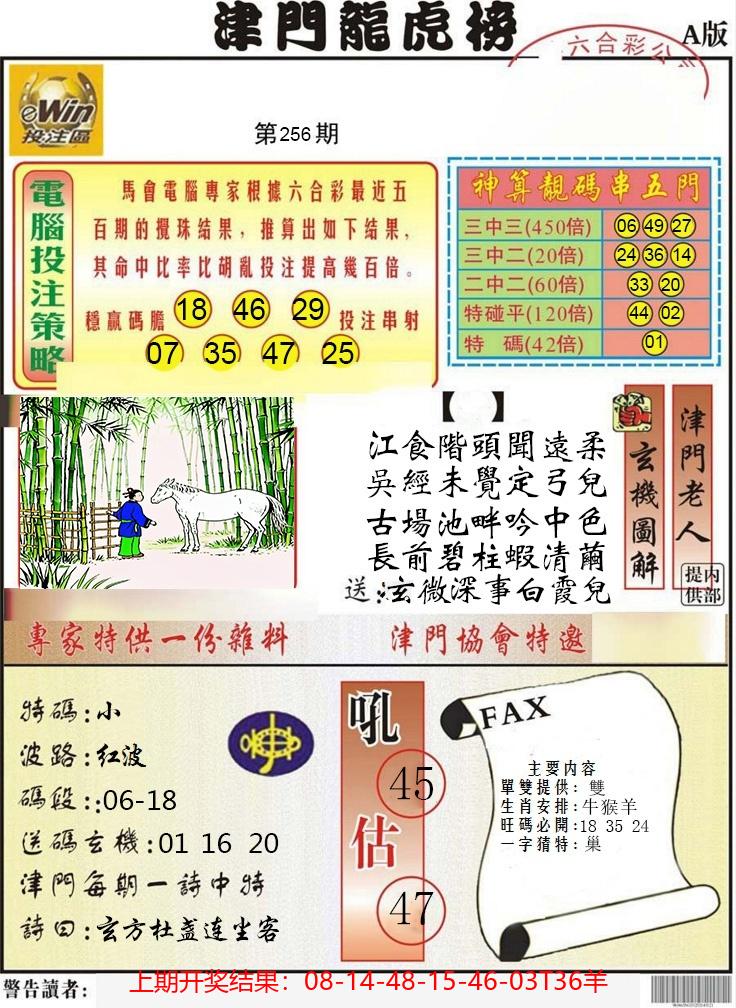 津門龍虎榜
A版
六合彩公
eWin
投注區
第256期
電腦投注策略
馬會電腦專家根據六合彩最近五
百期的攪珠结果，推算出如下结果，
其命中比率比胡亂投注提高幾百倍。
穩贏碼膽 18 46 29 投注串射
07 35 47 25
神算靚碼串五門
三中三(450倍) 06 49 27
三中二(20倍) 24 36 14
二中二(60倍) 33 20
特碰平(120倍) 44 02
特 碼(42倍) 01
【 】
江食階頭聞遠柔
吳經未覺定弓兒
古場池畔吟中色
長前碧柱蝦清繭
送:玄微深事白霞兒
玄機圖解
津門老人
内部提供
專家特供一份雜料
津門協會特邀
特碼:小
波路:红波
碼段::06-18
送碼玄機:01 16 20
津門每期一詩中特
詩曰:玄方杜盏连坐客
吼
45
估
47
FAX
主要内容
單雙提供: 雙
生肖安排:牛猴羊
旺碼必開:18 35 24
一字猜特: 巢
警告讀者:
上期开奖结果：08-14-48-15-46-03T36羊